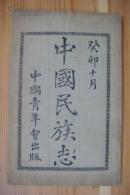 癸卯十月
中國民族志
中國青年會出版